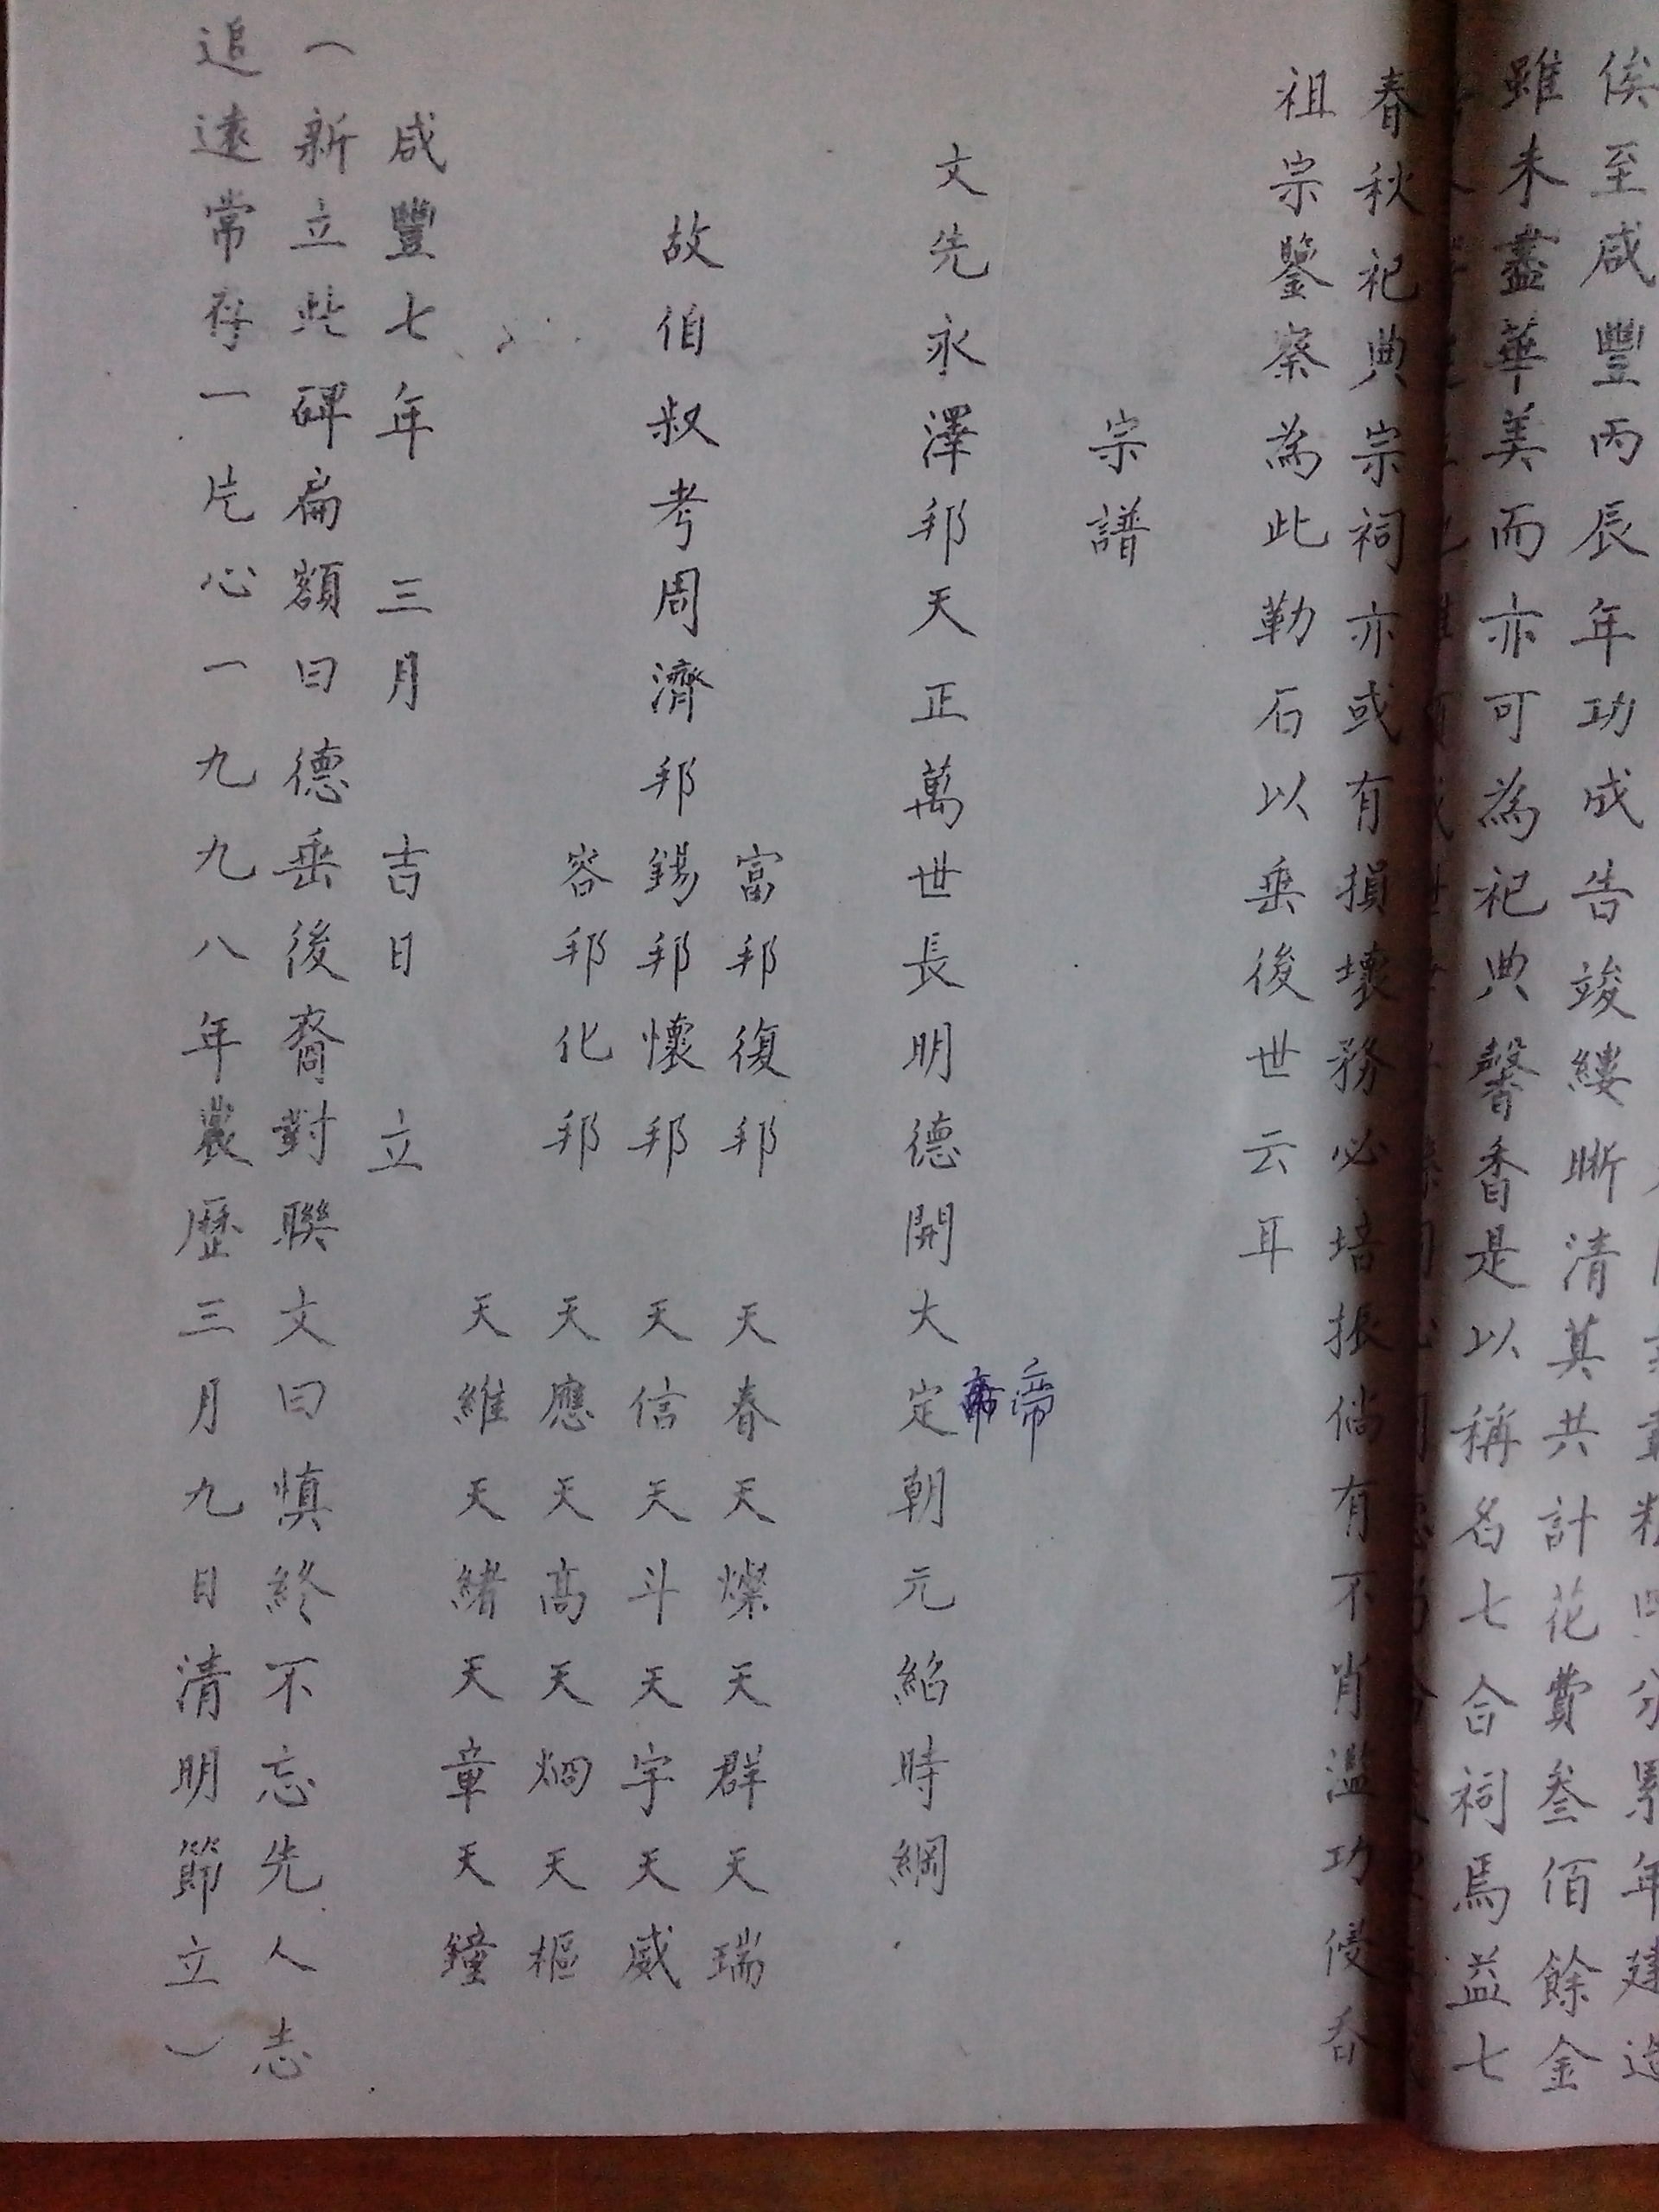 俟至咸豐丙辰年功成告竣縷晰清其共計花費叁佰餘金
雖未盡華美而亦可為祀典馨香是以稱名七合祠焉益七
春秋祀典宗祠亦或有損壞務必培振倘有不肖濫功侵吞
祖宗鑒察為此勒石以垂後世云耳
宗譜
文先永澤邦天正萬世長明德開大定朝元紹時綱
帝
故伯叔考周濟邦
富邦復邦
錫邦懷邦
容邦化邦
天春天燦天群天瑞
天信天斗天宇天威
天應天高天炯天樞
天維天緒天章天鐘
咸豐七年 三月 吉日 立
（新立此碑扁額曰德垂後裔對聯文曰慎終不忘先人志
追遠常存一片心一九九八年農歷三月九日清明節立）